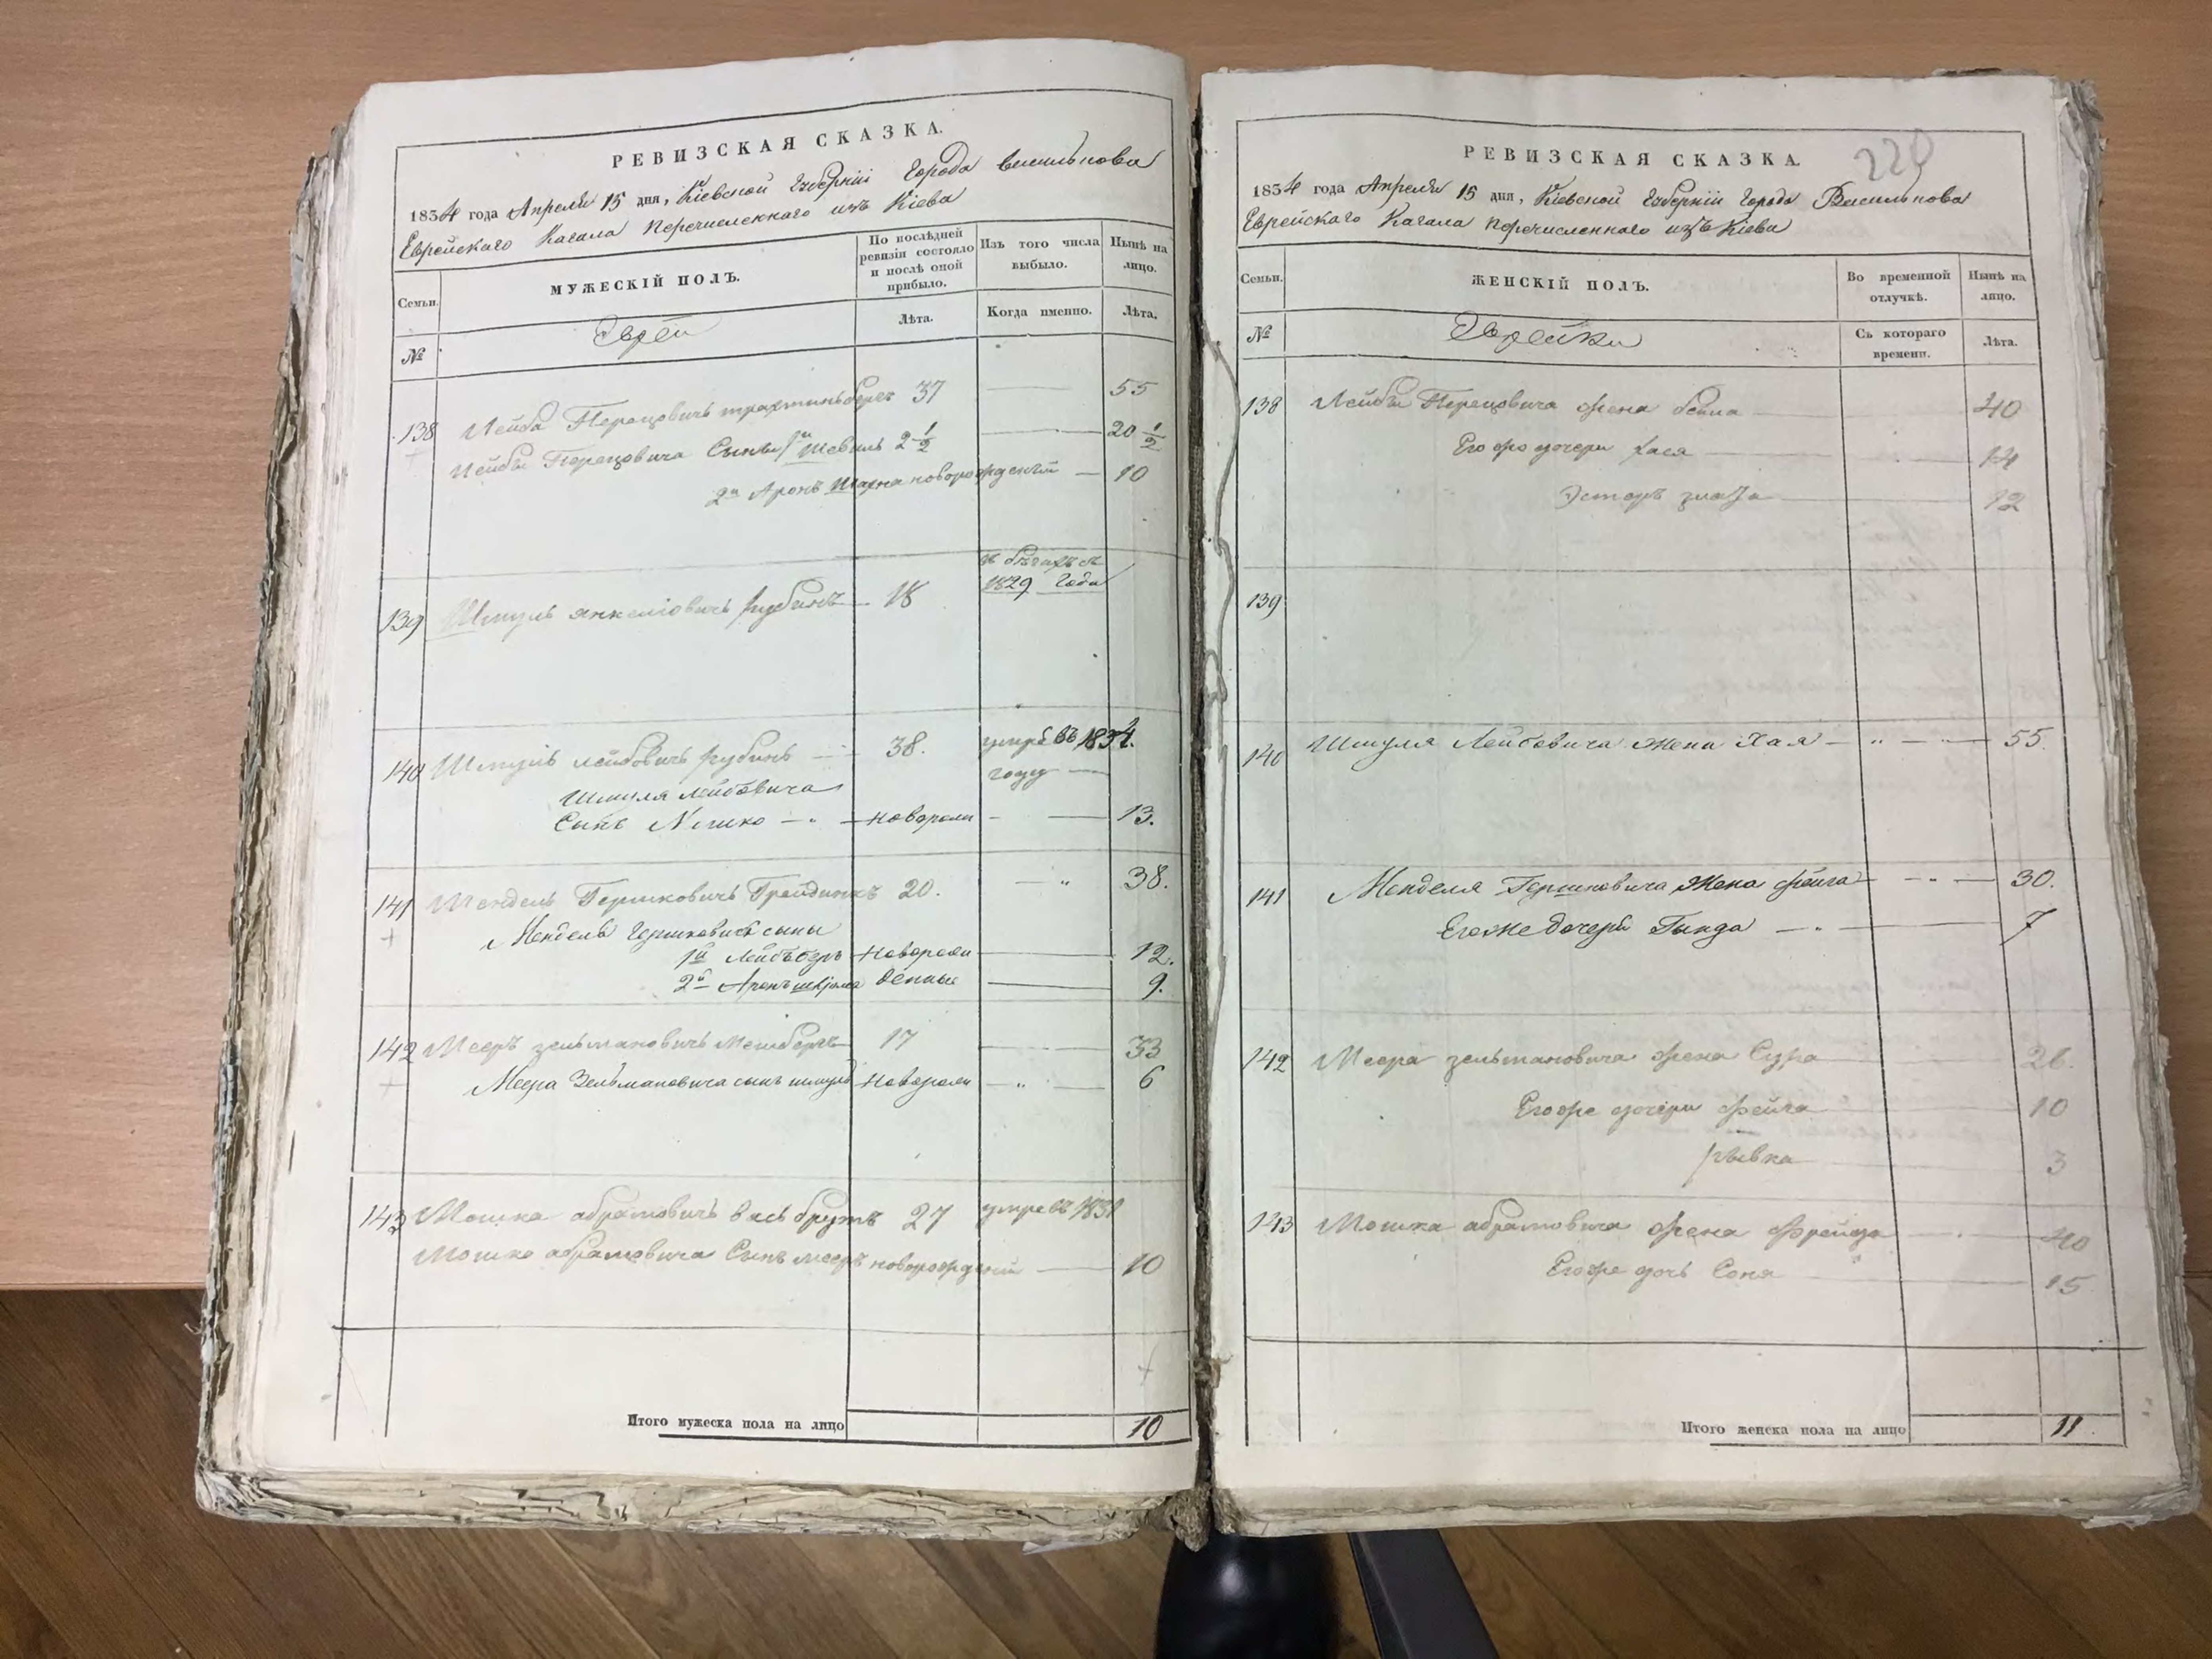 РЕВИЗСКАЯ СКАЗКА.
1834 года Апреля 15 дня, Кіевской Губерніи Города Василькова
Еврейскаго Кагала перечисленнаго изъ Кіева
Семьи.
МУЖЕСКІЙ ПОЛЪ.
По послѣдней ревизіи состояло и послѣ оной прибыло.
Изъ того числа выбыло.
Нынѣ на лицо.
Лѣта.
Когда именно.
Лѣта.
№
Евреи
138 Лейба Перецовичъ 37 55
Лейбы Перецовича Сыны 2 1/2 20 1/2
2й Аронъ новорожденый 10
139 Шмуль Янкеліовичъ Рубинъ 18 въ бѣгахъ съ
1829 года
140 Шмуль Лейбовичъ Рубинъ 38. умре въ 1834.
году
Шмуля Лейбовича
Сынъ новорожд 13.
141 Мендель Гершковичъ 20. 38.
Мендель Гершковича сыны
1й новорож 12.
2й Аронъ денные 9.
142 Мееръ Зельмановичъ 17 33
Меера Зельмановича сынъ шмуль новорож 6
143 Мошка абрамовичъ 27 умре въ 1831
Мошко абрамовича Сынъ мееръ новорожденый 10
Итого мужеска пола на лицо 10
РЕВИЗСКАЯ СКАЗКА.
229
1834 года Апреля 15 дня, Кіевской Губерніи Города Василькова
Еврейскаго Кагала перечисленнаго изъ Кіева
Семьи.
ЖЕНСКІЙ ПОЛЪ.
Во временной отлучкѣ.
Нынѣ на лицо.
№
Еврейки
Съ котораго времени.
Лѣта.
138 Лейбы Перецовича жена 40
Его же дочери хася 14
Эстеръ злата 12
139
140 Шмуля Лейбовича жена Хая 55.
141 Менделя Гершковича жена фейга 30.
Егоже дочери Гында 7
142 Меера зельмановича жена Сура 26.
Егоже дочери фейга 10
Рывка 3
143 Мошка абрамовича жена Фрейда 40
Егоже дочь Соня 15
Итого женска пола на лицо 11.